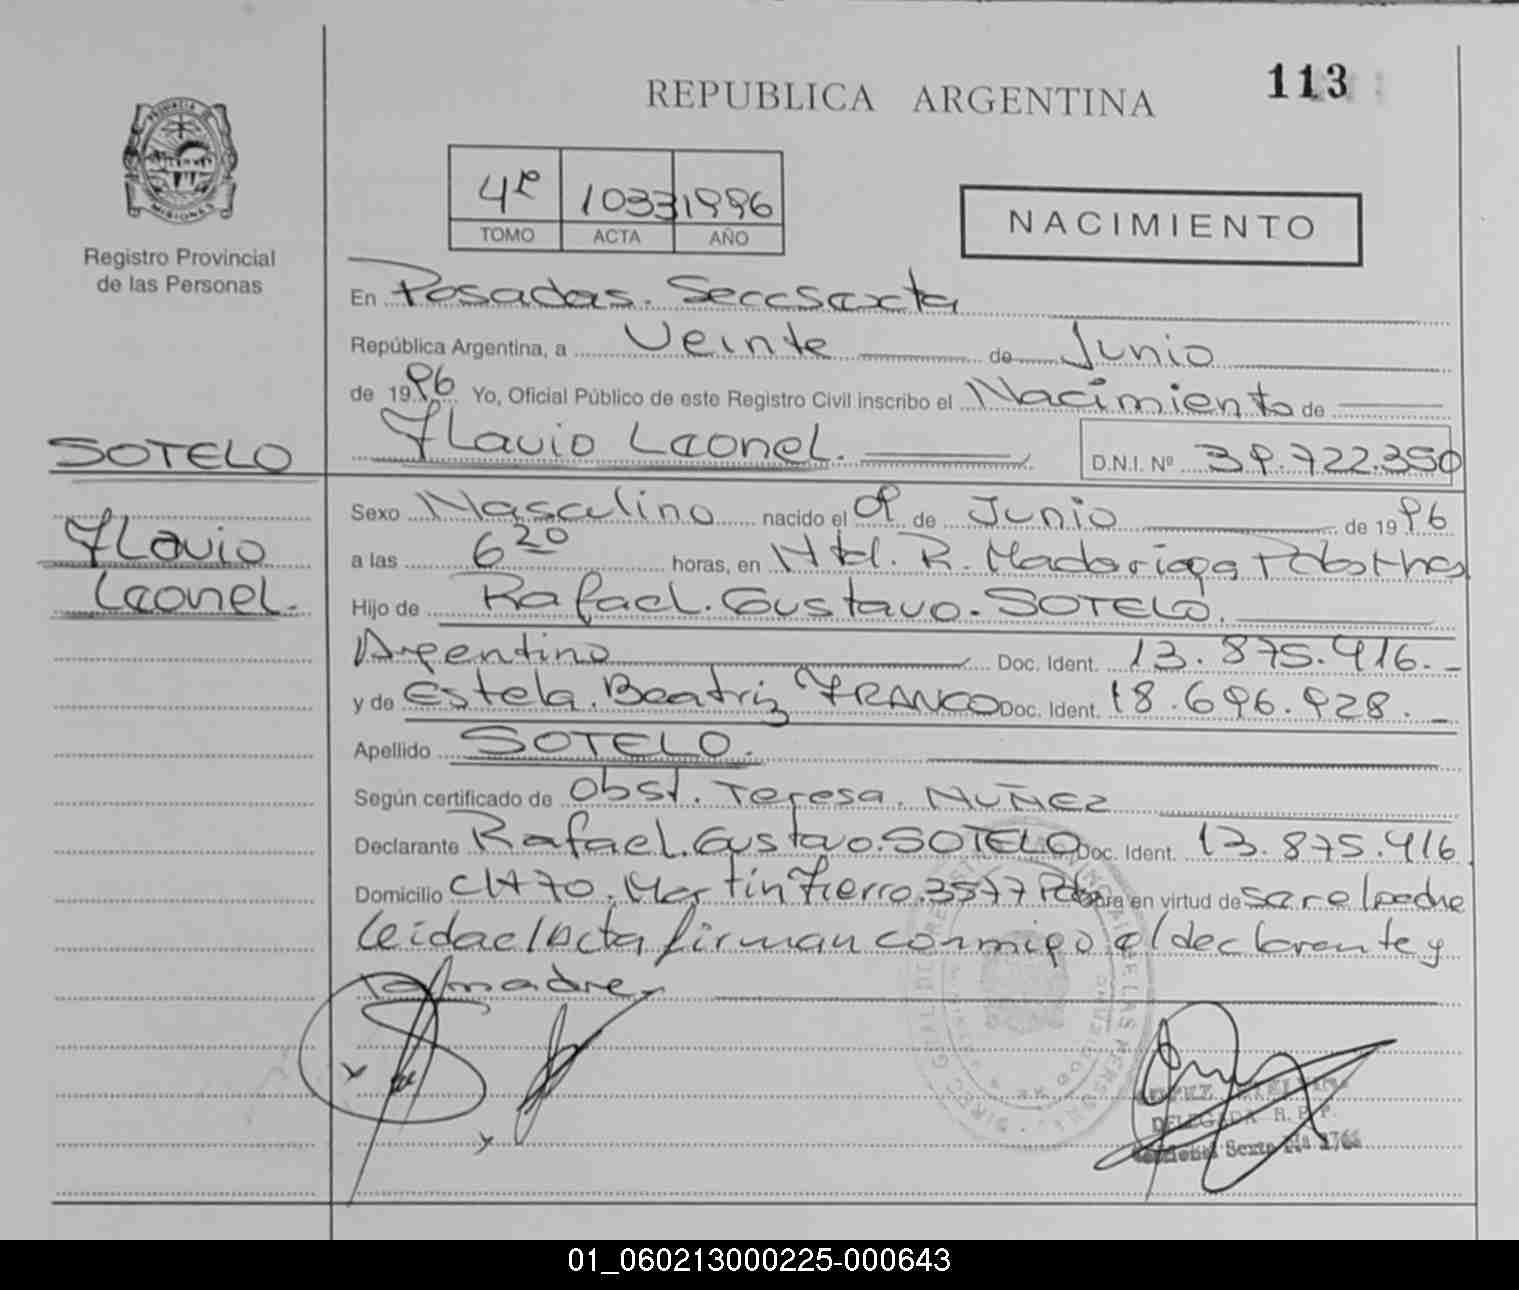 113
REPUBLICA ARGENTINA
PROVINCIA DE MISIONES
Registro Provincial
de las Personas
4º 1033 1996
TOMO ACTA AÑO
NACIMIENTO
En Posadas. Seccsexta
República Argentina, a Veinte de Junio
de 1996 Yo, Oficial Público de este Registro Civil inscribo el Nacimiento de
Flavio Leonel. D.N.I. Nº 39.722.350
SOTELO
Flavio
Leonel.
Sexo Masculino nacido el 09 de Junio de 1996
a las 6 20 horas, en Htal. R. Madariaga
Hijo de Rafael. Gustavo. SOTELO.
Argentino Doc. Ident. 13.875.416.
y de Estela. Beatriz FRANCO Doc. Ident. 18.696.928.
Apellido SOTELO.
Según certificado de Obst. Teresa. NUÑEZ
Declarante Rafael. Gustavo. SOTELO Doc. Ident. 13.875.416
Domicilio CH 70. Martin Fierro. 3577 obra en virtud de ser el padre
leida el Acta firman conmigo el declarante y
la madre
DELEGADA R.P.P.
Seccional Sexta
01_060213000225-000643